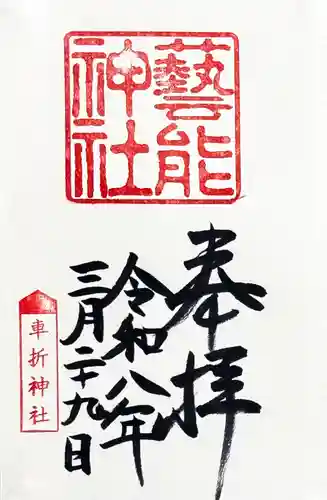 藝能
神社
奉拝
令和八年
三月二十九日
車折神社